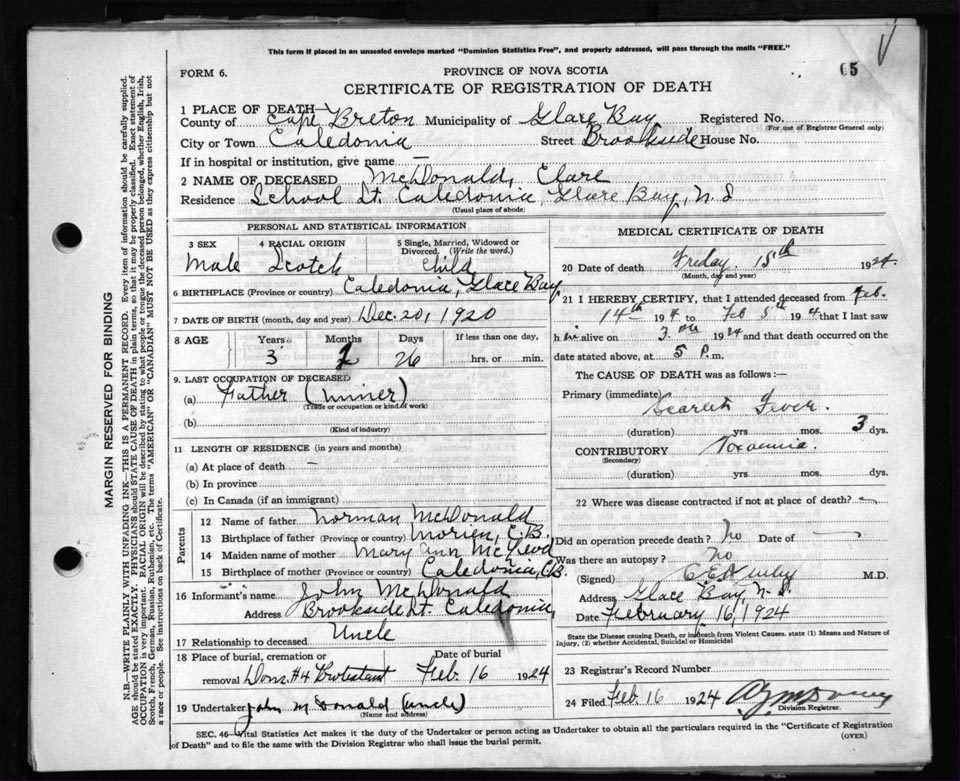 This form if placed in an unsealed envelope marked "Dominion Statistics Free", and properly addressed, will pass through the mails "FREE."
65
FORM 6.
PROVINCE OF NOVA SCOTIA
CERTIFICATE OF REGISTRATION OF DEATH
1 PLACE OF DEATH—
County of Cape Breton Municipality of Glace Bay Registered No.
(For use of Registrar General only)
City or Town Caledonia Street Brookside House No.
If in hospital or institution, give name —
2 NAME OF DECEASED McDonald, Clare
Residence School St. Caledonia, Glace Bay, N.S
(Usual place of abode)
PERSONAL AND STATISTICAL INFORMATION
3 SEX 4 RACIAL ORIGIN 5 Single, Married, Widowed or Divorced. (Write the word.)
Male Scotch Child
6 BIRTHPLACE (Province or country) Caledonia, Glace Bay
7 DATE OF BIRTH (month, day and year) Dec. 20, 1920
8 AGE Years Months Days If less than one day,
3 26 hrs. or min.
9. LAST OCCUPATION OF DECEASED
(a) Father (miner)
(Trade or occupation or kind of work)
(b)
(Kind of industry)
11 LENGTH OF RESIDENCE (in years and months)
(a) At place of death —
(b) In province
(c) In Canada (if an immigrant)
Parents
12 Name of father Norman McDonald
13 Birthplace of father (Province or country) Morien, C.B.
14 Maiden name of mother Mary Ann McLeod
15 Birthplace of mother (Province or country) Caledonia, C.B.
16 Informant's name John McDonald
Address Brookside St. Caledonia
17 Relationship to deceased Uncle
18 Place of burial, cremation or removal Date of burial
Dom. #4 Protestant Feb. 16 1924
19 Undertaker John McDonald (uncle)
(Name and address)
MEDICAL CERTIFICATE OF DEATH
20 Date of death Friday 15th 1924
(Month, day and year)
21 I HEREBY CERTIFY, that I attended deceased from Feb.
14th 1924 to Feb 1924 that I last saw
h alive on 1924 and that death occurred on the
date stated above, at 5 P. m.
The CAUSE OF DEATH was as follows:—
Primary (immediate) Scarlet Fever.
(duration) yrs mos. 3 dys.
CONTRIBUTORY Toxaemia.
(Secondary)
(duration) yrs mos. dys.
22 Where was disease contracted if not at place of death? —
Did an operation precede death? No Date of —
Was there an autopsy? No
(Signed) M.D.
Address Glace Bay N.S.
Date February 16, 1924
State the Disease causing Death, or in death from Violent Causes, state (1) Means and Nature of
injury, (2) whether Accidental, Suicidal or Homicidal
23 Registrar's Record Number
24 Filed Feb. 16 1924
Division Registrar.
SEC. 46—Vital Statistics Act makes it the duty of the Undertaker or person acting as Undertaker to obtain all the particulars required in the "Certificate of Registration
of Death" and to file the same with the Division Registrar who shall issue the burial permit.
(OVER)
MARGIN RESERVED FOR BINDING
N.B.—WRITE PLAINLY WITH UNFADING INK—THIS IS A PERMANENT RECORD. Every item of information should be carefully supplied.
AGE should be stated EXACTLY. PHYSICIANS should STATE CAUSE OF DEATH in plain terms, so that it may be properly classified. Exact statement of
OCCUPATION is very important. RACIAL ORIGIN will be described by stating to what people or tongue the deceased person belonged, whether English, Irish,
Scotch, French, German, Russian, Ruthenian, etc. The terms "AMERICAN" OR "CANADIAN" MUST NOT BE USED as they express citizenship but not
a race or people. See instructions on back of Certificate.